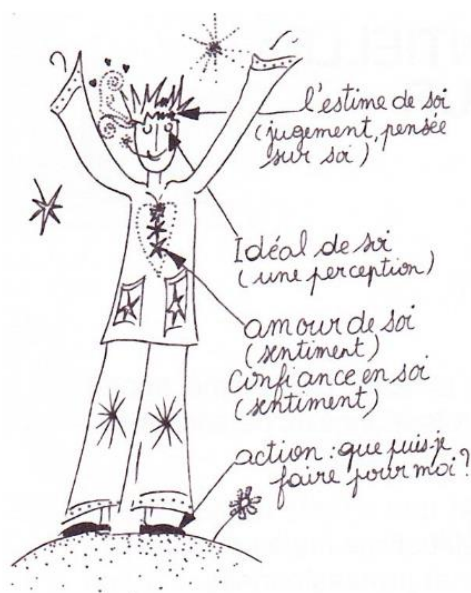 l'estime de soi
(jugement, pensée
sur soi)
Idéal de soi
(une perception)
amour de soi
(sentiment)
Confiance en soi
(sentiment)
action : que puis-je
faire pour moi ?